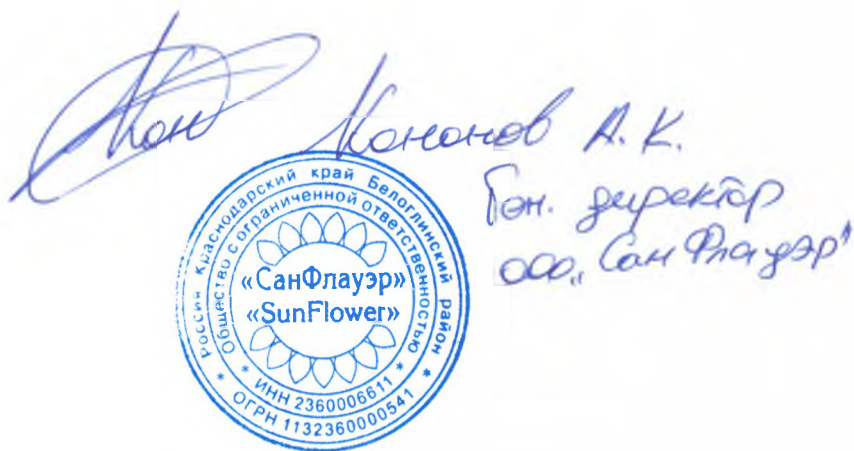 Кононов А. К.
Ген. директор
ООО „Сан Флауэр"
Россия Краснодарский край Белоглинский район
Общество с ограниченной ответственностью
«СанФлауэр»
«SunFlower»
* ИНН 2360006611 *
* ОГРН 1132360000541 *